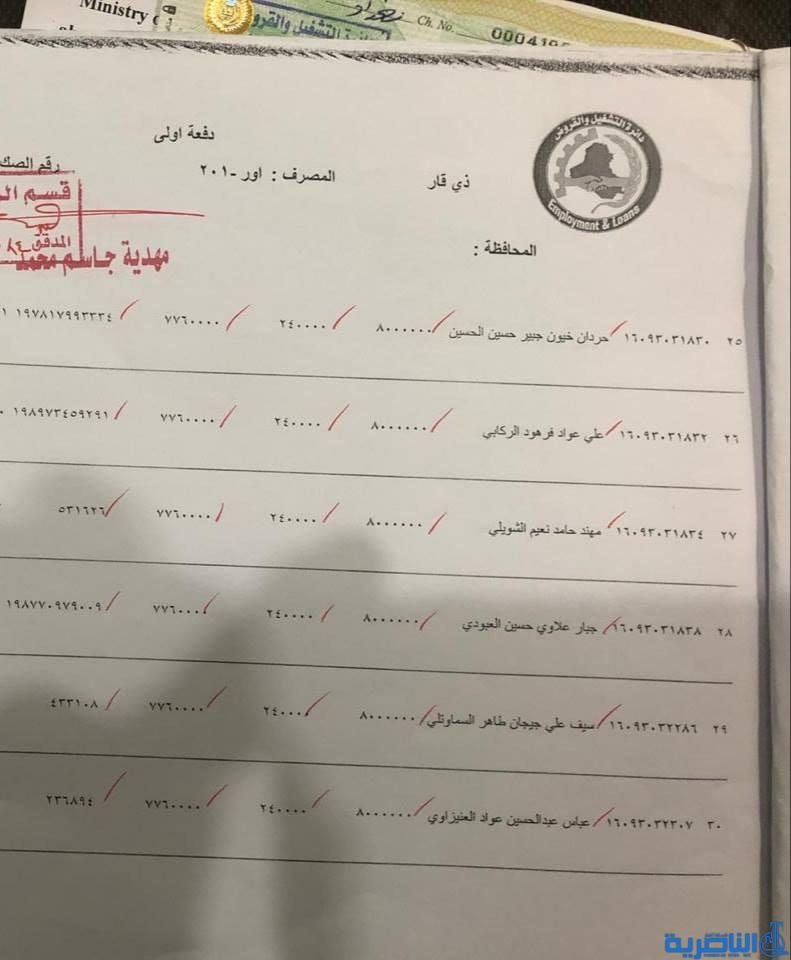 Ministry
دائرة التشغيل والقروض
Ch. No.
دفعة اولى
دائرة التشغيل والقروض
Employment & Loans
رقم الصك
المصرف : اور -٢٠١
ذي قار
المحافظة :
المدقق
مهدية جاسم محمد
٢٥ ١٦٠٩٣٠٣١٨٣٠ حردان خيون جبير حسين الحسين ٨٠٠٠٠٠٠ ٢٤٠٠٠٠ ٧٧٦٠٠٠٠ ١٩٧٨١٧٩٩٣٣٣٤
٢٦ ١٦٠٩٣٠٣١٨٣٢ علي عواد فرهود الركابي ٨٠٠٠٠٠٠ ٢٤٠٠٠٠ ٧٧٦٠٠٠٠ ١٩٨٩٧٣٤٥٩٢٩١
٢٧ ١٦٠٩٣٠٣١٨٣٤ مهند حامد نعيم الشويلي ٨٠٠٠٠٠٠ ٢٤٠٠٠٠ ٧٧٦٠٠٠٠ ٥٣١٦٢٦
٢٨ ١٦٠٩٣٠٣١٨٣٨ جبار علاوي حسين العبودي ٨٠٠٠٠٠٠ ٢٤٠٠٠٠ ٧٧٦٠٠٠٠ ١٩٨٧٧٠٩٧٩٠٠٩
٢٩ ١٦٠٩٣٠٣٢٢٨٦ سيف علي جيجان طاهر السماوتلي ٨٠٠٠٠٠٠ ٢٤٠٠٠٠ ٧٧٦٠٠٠٠ ٤٣٣١٠٨
٣٠ ١٦٠٩٣٠٣٢٣٠٧ عباس عبدالحسين عواد العنيزاوي ٨٠٠٠٠٠٠ ٢٤٠٠٠٠ ٧٧٦٠٠٠٠ ٢٣٦٨٩٤
الناصرية